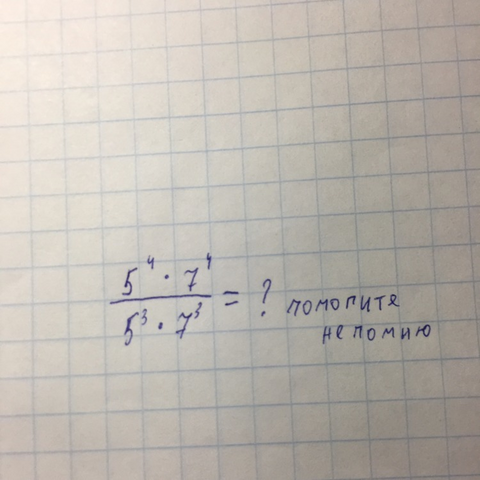 5⁴ · 7⁴
5³ · 7³
= ? помогите
не помню